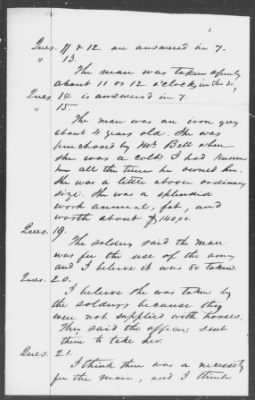 Ques. 11 & 12 are answered in 7.
" 13.
The mare was taken openly
about 11 or 12 o'clock in the day
Ques. 14 is answered in 7.
" 15
The mare was an iron grey
about 4 years old. She was
purchased by Mr. Bell when
she was a colt. I had known
her all the time he owned her.
She was a little above ordinary
size. She was a splendid
work animal, fat, and
worth about $140,00.
Ques. 19.
The soldiers said the mare
was for the use of the army
and I believe it was so taken.
Ques. 20.
I believe she was taken by
the soldiers because they
were not supplied with horses.
They said the officers sent
them to take her.
Ques. 21.
I think there was a necessity
for the mare, and I think